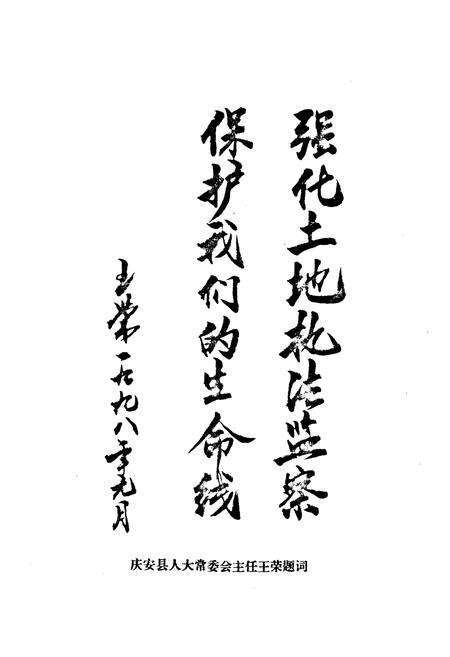 强化土地执法监察
保护我们的生命线
王荣一九九八年元月
庆安县人大常委会主任王荣题词